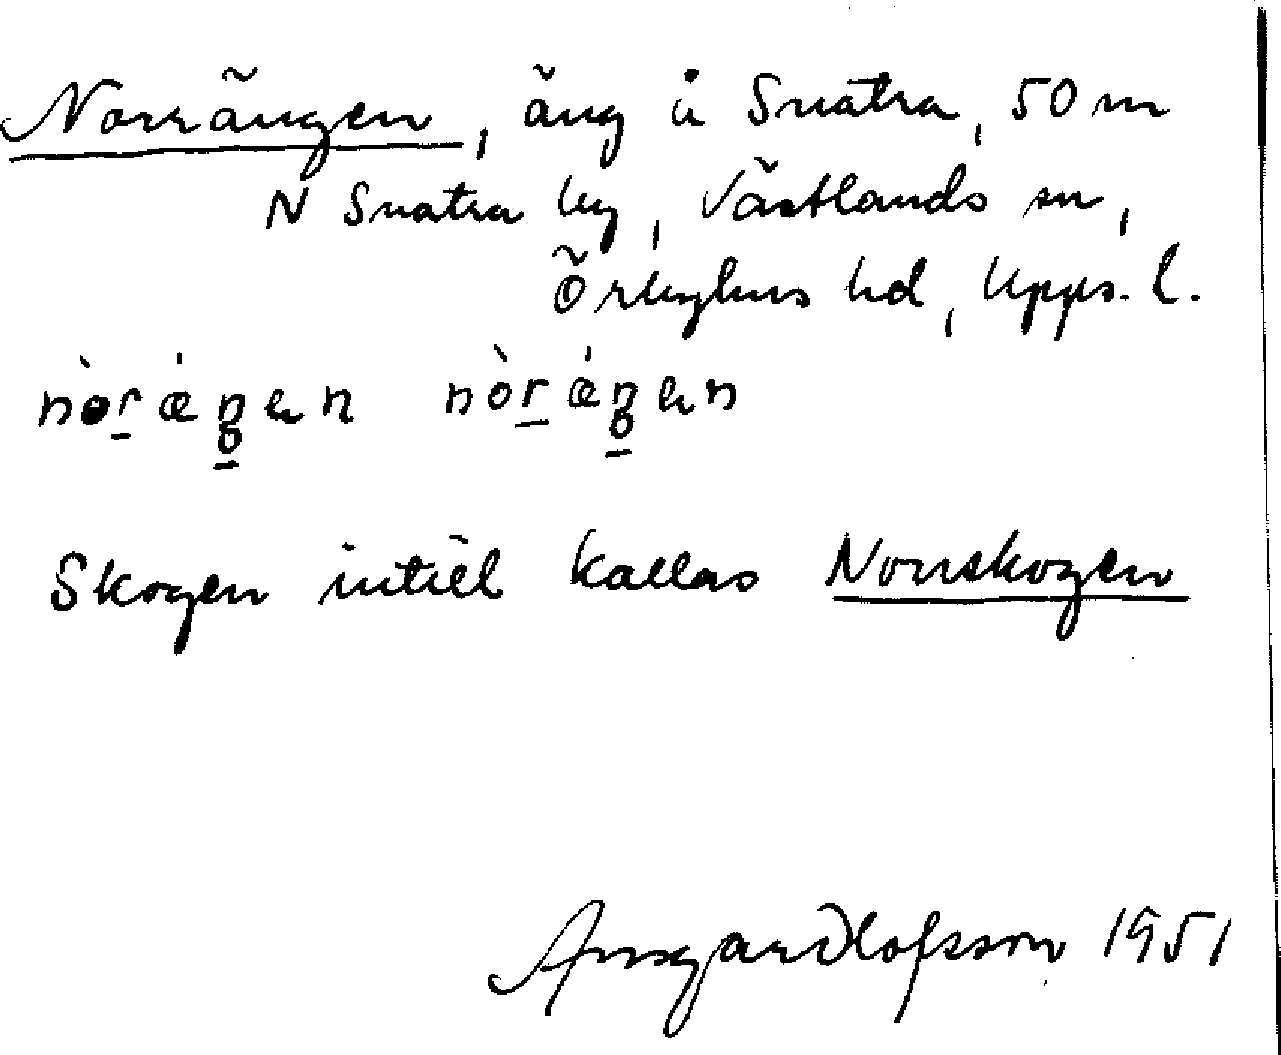 Norrängen, äng å Snatra, 50 m
N Snatra by, Västlands sn,
Örbyhus hd, Upps. l.
nòrǽŋən nòrǽŋən
Skogen intill kallas Norrskogen
Olofsson 1951